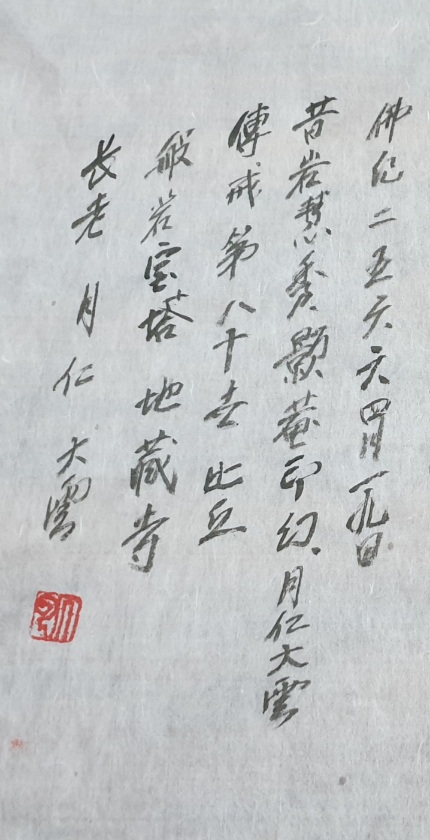 佛纪二五六六四月一九日
昔岩慧秀顯菴印幻、月仁大雲
傳戒第八十世比丘
般若宝塔 地藏寺
长老 月仁 大雲